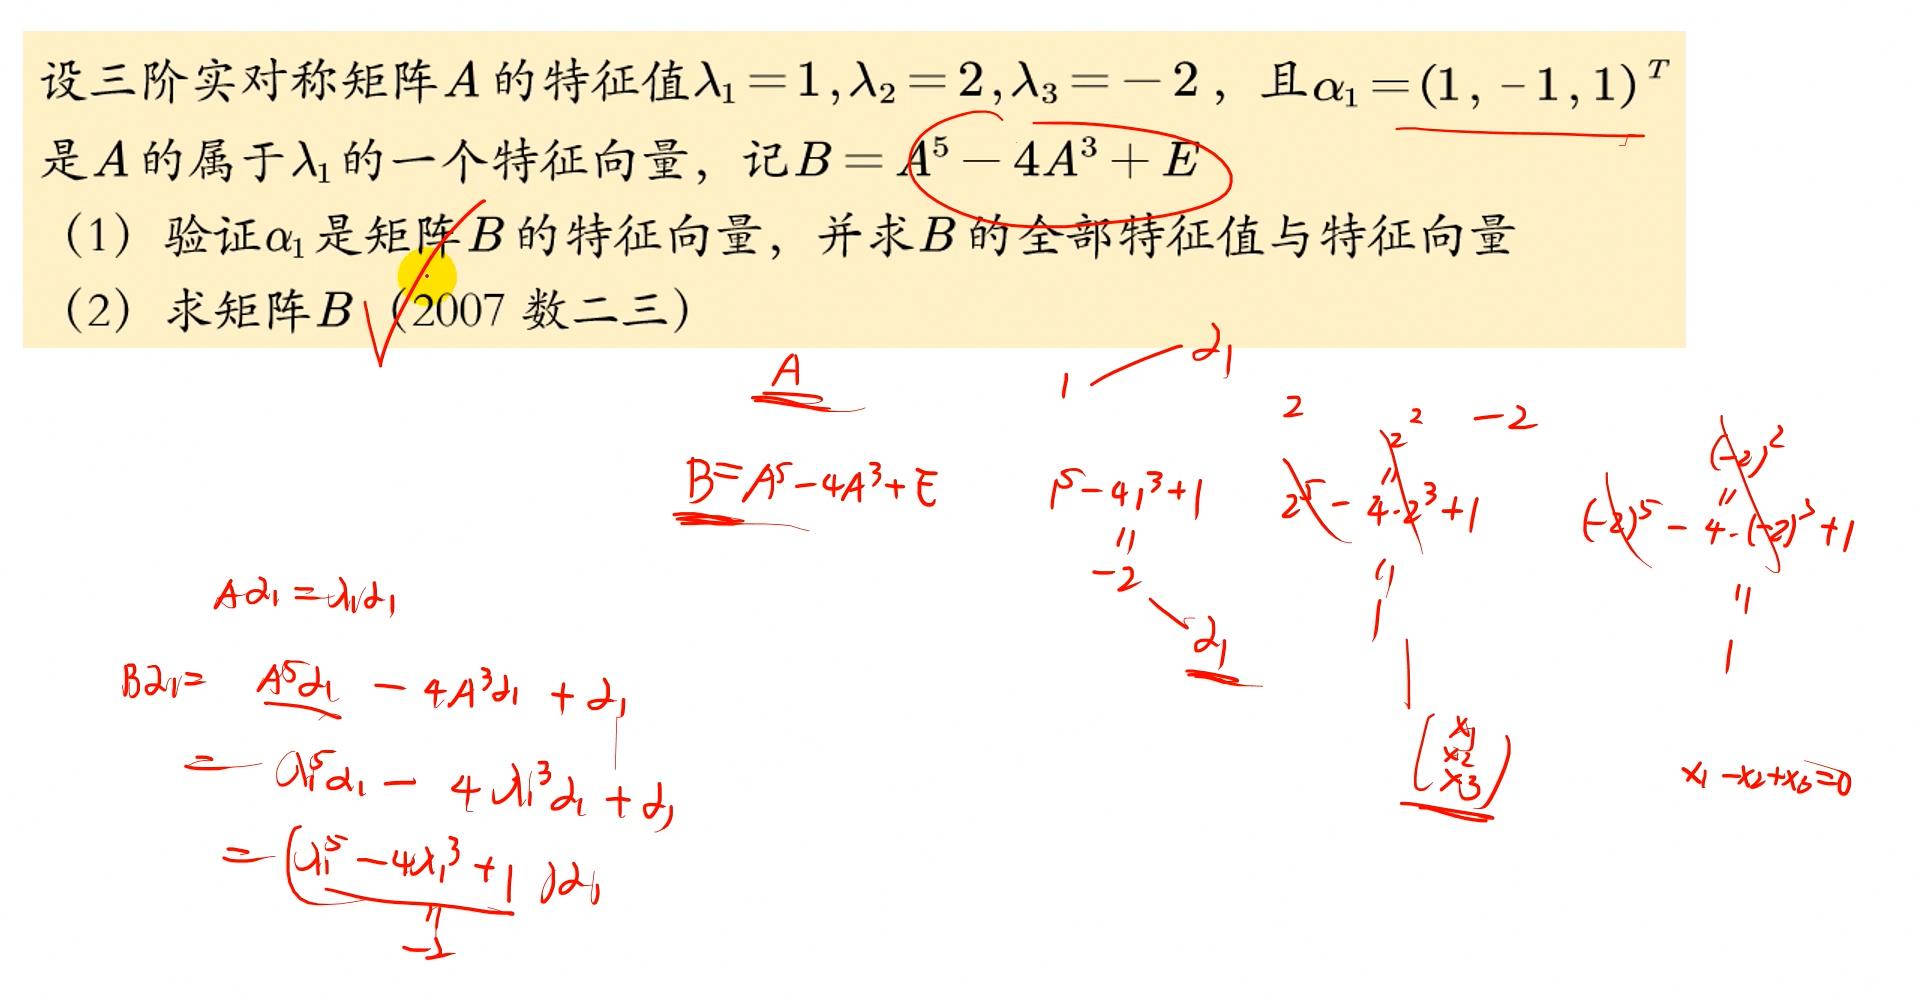 设三阶实对称矩阵A的特征值λ₁=1,λ₂=2,λ₃=-2，且α₁=(1,-1,1)ᵀ
是A的属于λ₁的一个特征向量，记B=A⁵-4A³+E
（1）验证α₁是矩阵B的特征向量，并求B的全部特征值与特征向量
（2）求矩阵B（2007数二三）
A
1
α₁
2
-2
B=A⁵-4A³+E
1⁵-4·1³+1
=
-2
α₁
2²
=
2⁵-4·2³+1
=
1
(x₁
x₂
x₃)
(-2)²
=
(-2)⁵-4·(-2)³+1
=
1
x₁-x₂+x₃=0
Aα₁=λ₁α₁
Bα₁=A⁵α₁-4A³α₁+α₁
=λ₁⁵α₁-4λ₁³α₁+α₁
=(λ₁⁵-4λ₁³+1)α₁
=
-2